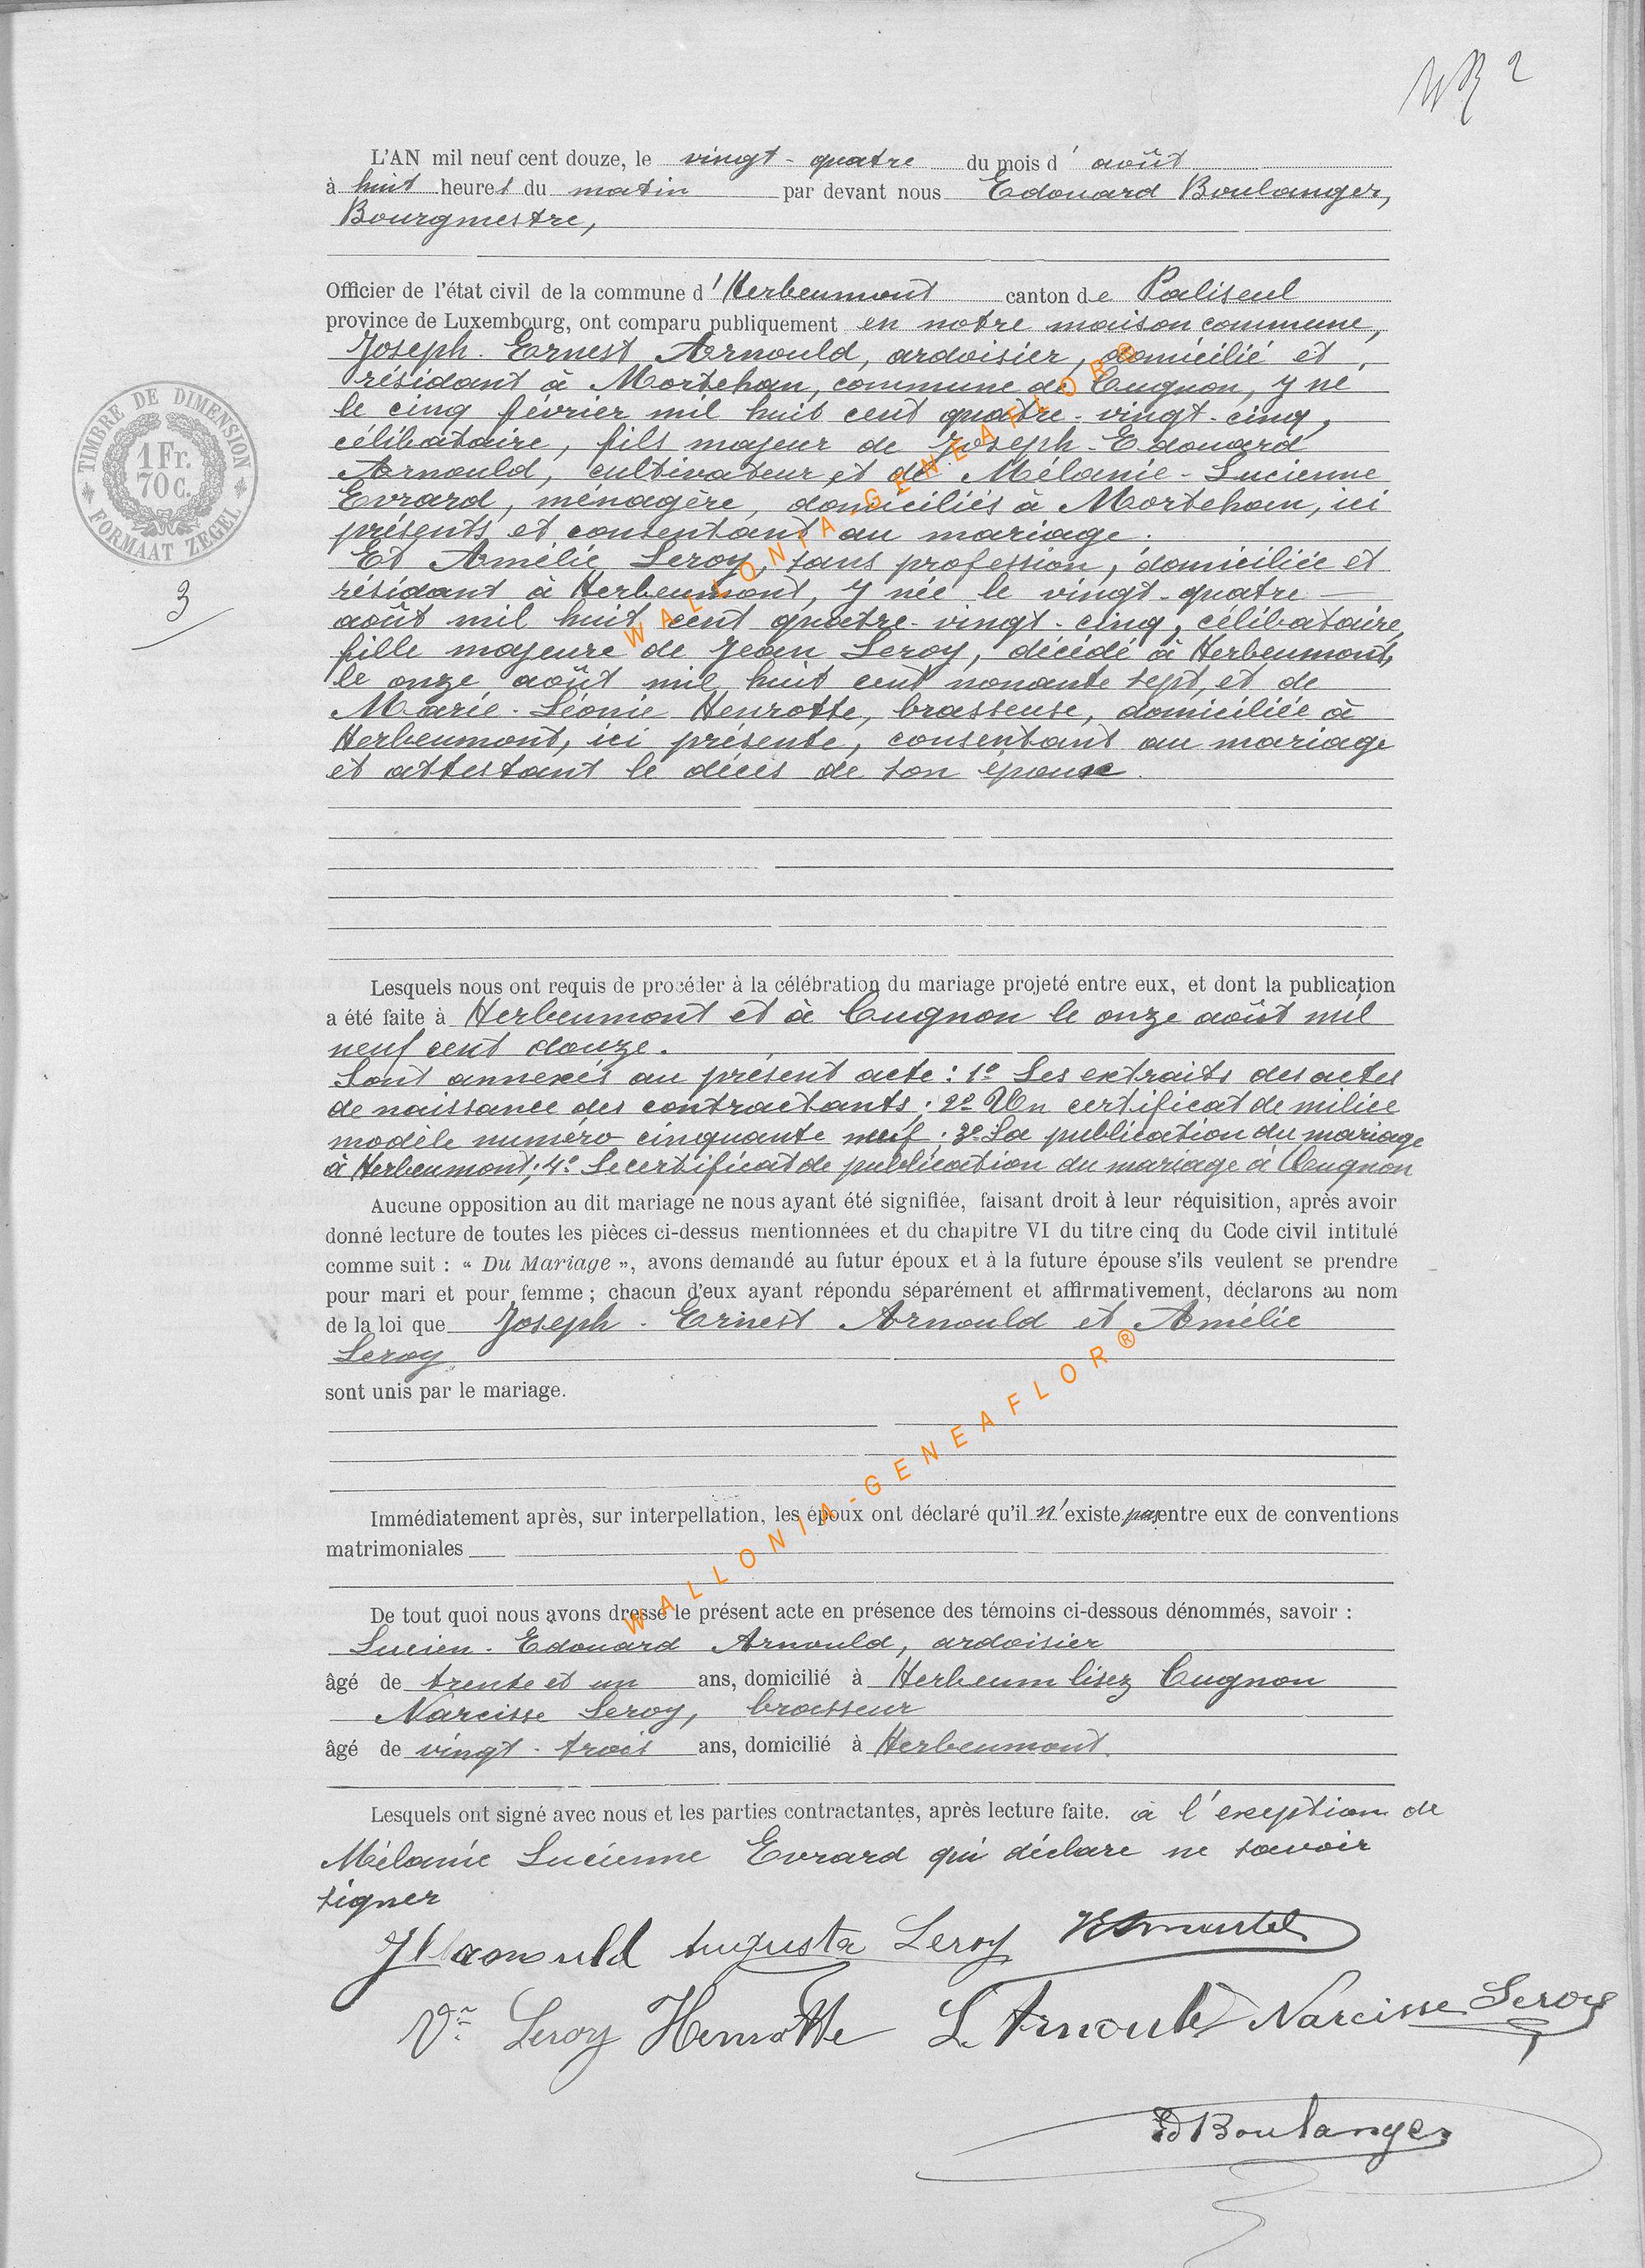 2
L'AN mil neuf cent douze, le vingt-quatre du mois d'août
à huit heures du matin par devant nous Edouard Boulanger,
Bourgmestre,
Officier de l'état civil de la commune d'Herbeumont canton de Paliseul
province de Luxembourg, ont comparu publiquement en notre maison commune,
Joseph-Ernest Arnould, ardoisier, domicilié et
résidant à Mortehan, commune de Cugnon, y né
le cinq février mil huit cent quatre-vingt-cinq,
célibataire, fils majeur de Joseph-Edouard
Arnould, cultivateur et de Mélanie-Lucienne
Evrard, ménagère, domiciliés à Mortehan, ici
présents et consentant au mariage.
Et Amélie Leroy, sans profession, domiciliée et
résidant à Herbeumont, y née le vingt-quatre
août mil huit cent quatre-vingt-cinq, célibataire,
fille majeure de Jean Leroy, décédé à Herbeumont,
le onze août mil huit cent nonante sept, et de
Marie-Léonie Henrotte, brasseuse, domiciliée à
Herbeumont, ici présente, consentant au mariage
et attestant le décès de son épouse.
TIMBRE DE DIMENSION
1 Fr.
70 c.
FORMAAT ZEGEL
3
Lesquels nous ont requis de procéder à la célébration du mariage projeté entre eux, et dont la publication
a été faite à Herbeumont et à Cugnon le onze août mil
neuf cent douze.
Sont annexés au présent acte : 1° Les extraits des actes
de naissance des contractants ; 2° Un certificat de milice
modèle numéro cinquante neuf ; 3° La publication du mariage
à Herbeumont ; 4° Le certificat de publication du mariage à Cugnon
Aucune opposition au dit mariage ne nous ayant été signifiée, faisant droit à leur réquisition, après avoir
donné lecture de toutes les pièces ci-dessus mentionnées et du chapitre VI du titre cinq du Code civil intitulé
comme suit : « Du Mariage », avons demandé au futur époux et à la future épouse s'ils veulent se prendre
pour mari et pour femme ; chacun d'eux ayant répondu séparément et affirmativement, déclarons au nom
de la loi que Joseph-Ernest Arnould et Amélie
Leroy
sont unis par le mariage.
Immédiatement après, sur interpellation, les époux ont déclaré qu'il n'existe pas entre eux de conventions
matrimoniales
De tout quoi nous avons dressé le présent acte en présence des témoins ci-dessous dénommés, savoir :
Lucien-Edouard Arnould, ardoisier
âgé de trente et un ans, domicilié à Herbeum lisez Cugnon
Narcisse Leroy, brasseur
âgé de vingt-trois ans, domicilié à Herbeumont.
Lesquels ont signé avec nous et les parties contractantes, après lecture faite. à l'exeption de
Mélanie Lucienne Evrard qui déclare ne savoir
signer
Arnould Augusta Leroy
Vve Leroy Henrotte L. Arnould Narcisse Leroy
Ed Boulanger
WALLONIA-GENEAFLOR®
WALLONIA-GENEAFLOR®